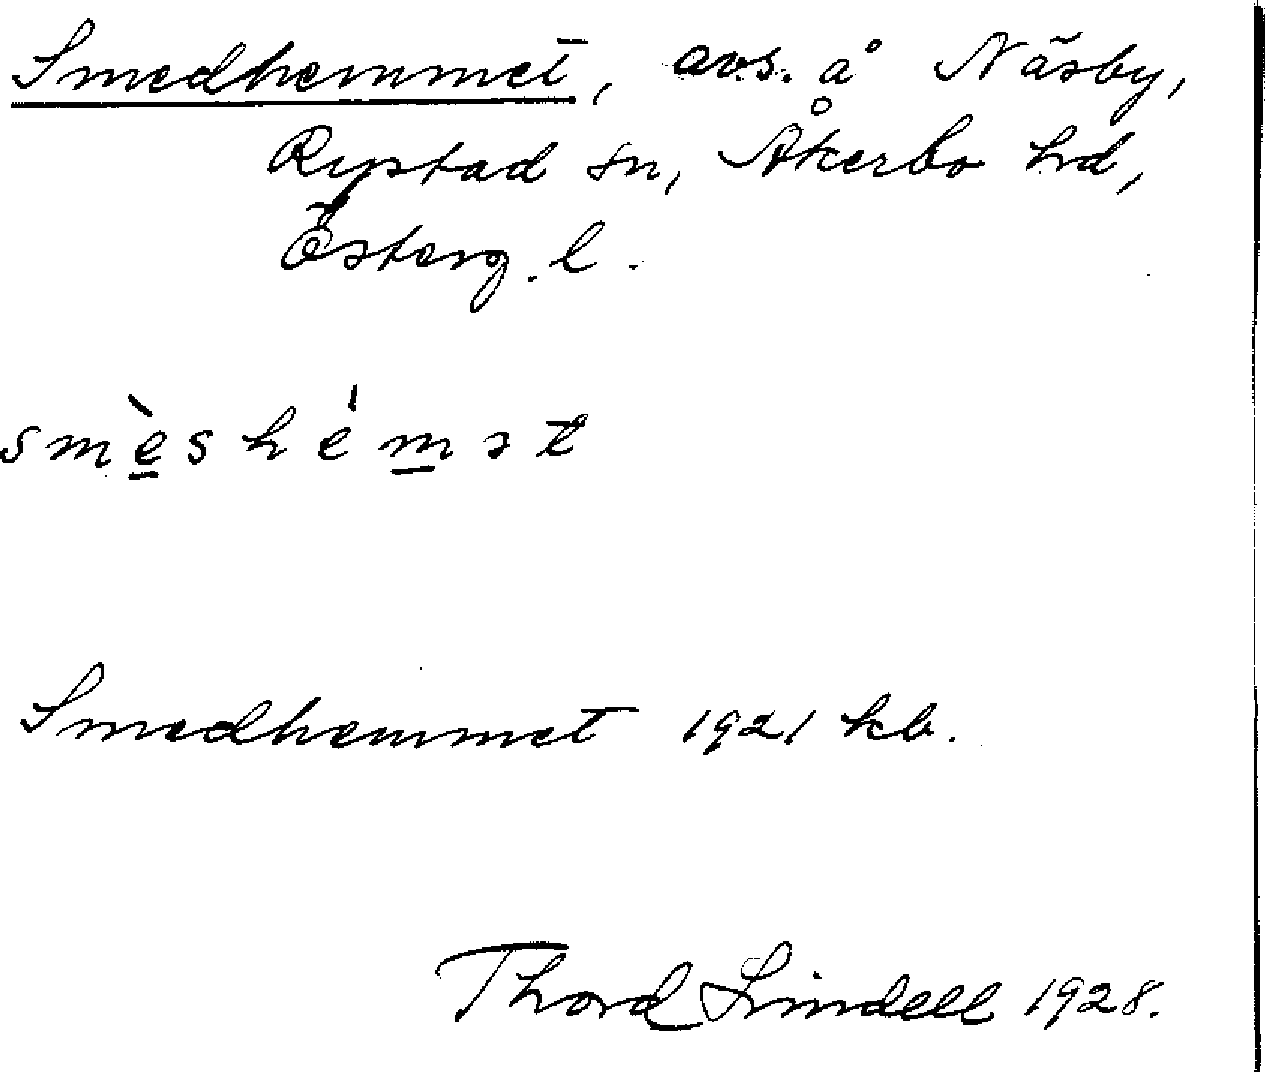 Smedhemmet, avs. å Näsby,
Rystad sn, Åkerbo hd,
Österg. l.
smèshémət
Smedhemmet 1921 kb.
Thord Lindell 1928.